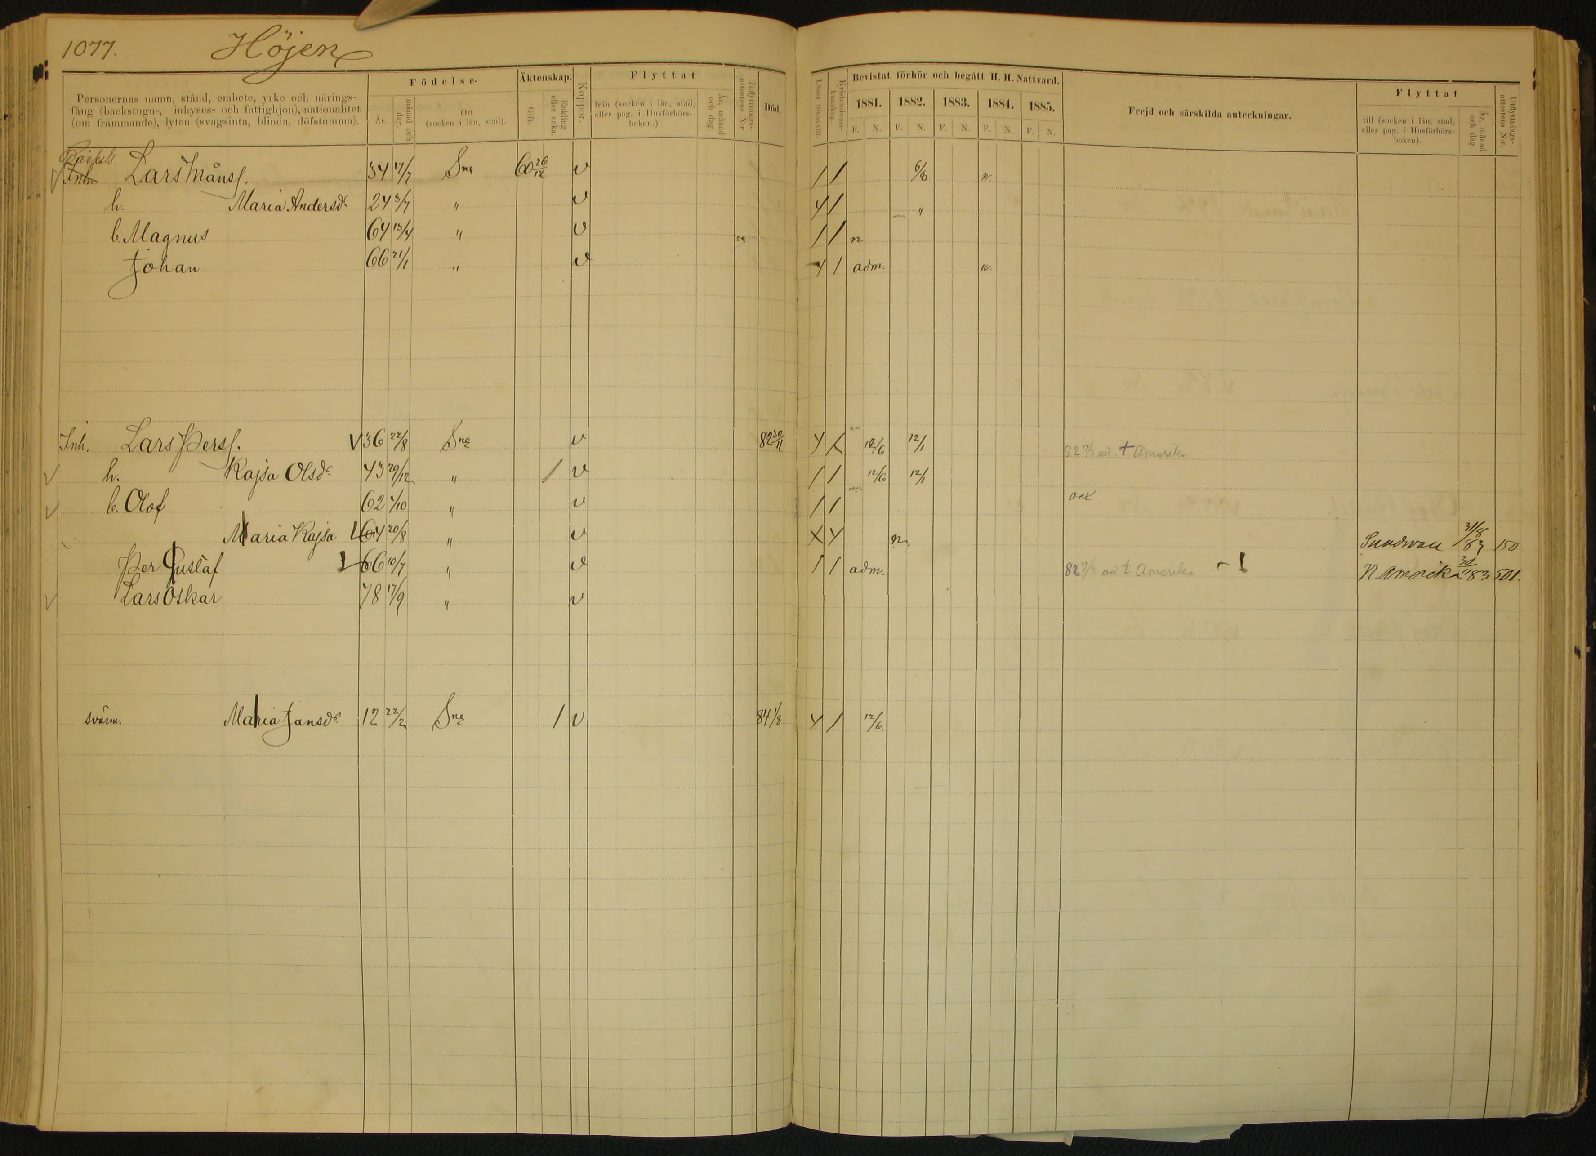 1077. Höjen
Födelse- Äktenskap. Koppor. Flyttat Död. Bevistat förhör och begått H. H. Nattvard. Frejd och särskilda anteckningar. Flyttat
Personernas namn, stånd, embete, yrke och närings-
fång (backstugu-, inhyses- och fattighjon), nationalitet
(om främmande), lyten (svagsinta, blinda, döfstumma).
År. månad och dag. Ort (socken i län, stad). Gift. Enkling eller enka. från (socken i län, stad, eller pag. i Husförhörs-boken.) År, månad och dag.
1881. 1882. 1883. 1884. 1885.
F. N. F. N. F. N. F. N. F. N.
till (socken i län, stad, eller pag. i Husförhörs-boken). År, månad och dag.
Inh. Lars Månss. 34 17/7 Sne 60 26/12 v 1 1 6/8 n.
h. Maria Andersdr 24 3/7 " v 4 1 "
b. Magnus 64 12/4 " v 1 1 n
Johan 66 21/1 " v 4 1 adm. n.
Inh. Lars Perss. 36 22/8 Sne v 82 30/11 12/6 12/1 Amerika
h. Kajsa Olsdr 43 29/12 " 1 v 1 1 12/6 12/1
b. Olof 62 4/10 " v 1 1
Maria Kajsa 64 20/8 " v n. Sundsvall 31/8 83 150
Per Gustaf 66 10/7 " v 1 1 adm. Amerika N. Amerika 83 501.
Lars Oskar 78 17/9 " v
svärm. Maria Jansdr 12 22/2 Sne 1 v 84 1/8 4 1 12/6